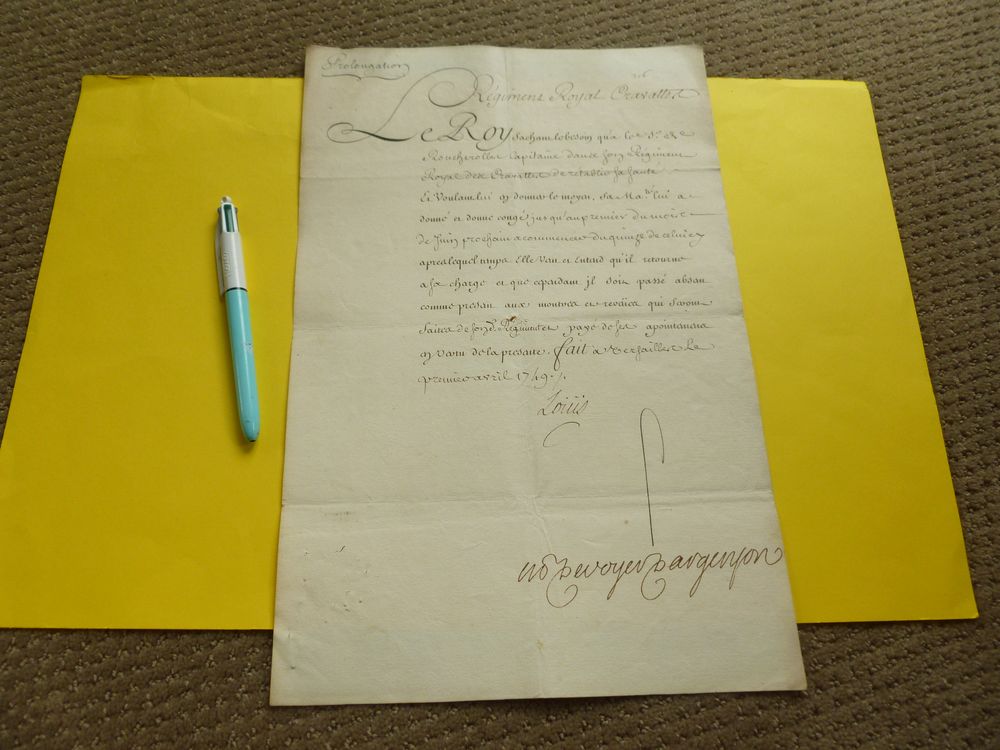 Prolongation
Régiment Royal Cravattes
Le Roy Sachant le besoin qu'a le Sr. de
Roucherolles Capitaine dans son Régiment
Royal des Cravattes de retablir sa santé
Et Voulant lui en donner le moyen, Sa Maté. lui a
donné et donne congé jusqu'au premier du mois
de Juin prochain a commencer du quinze de celuicy
apres lequel temps Elle Veut et Entend qu'il retourne
a sa charge et que cependant il soit passé absent
comme present aux montres et reveües qui seront
faites de sond. Régiment et payé de ses apointemens
en vertu de la presente. fait a Versailles Le
premier avril 1749./.
Louis
M P de voyer d'argenson